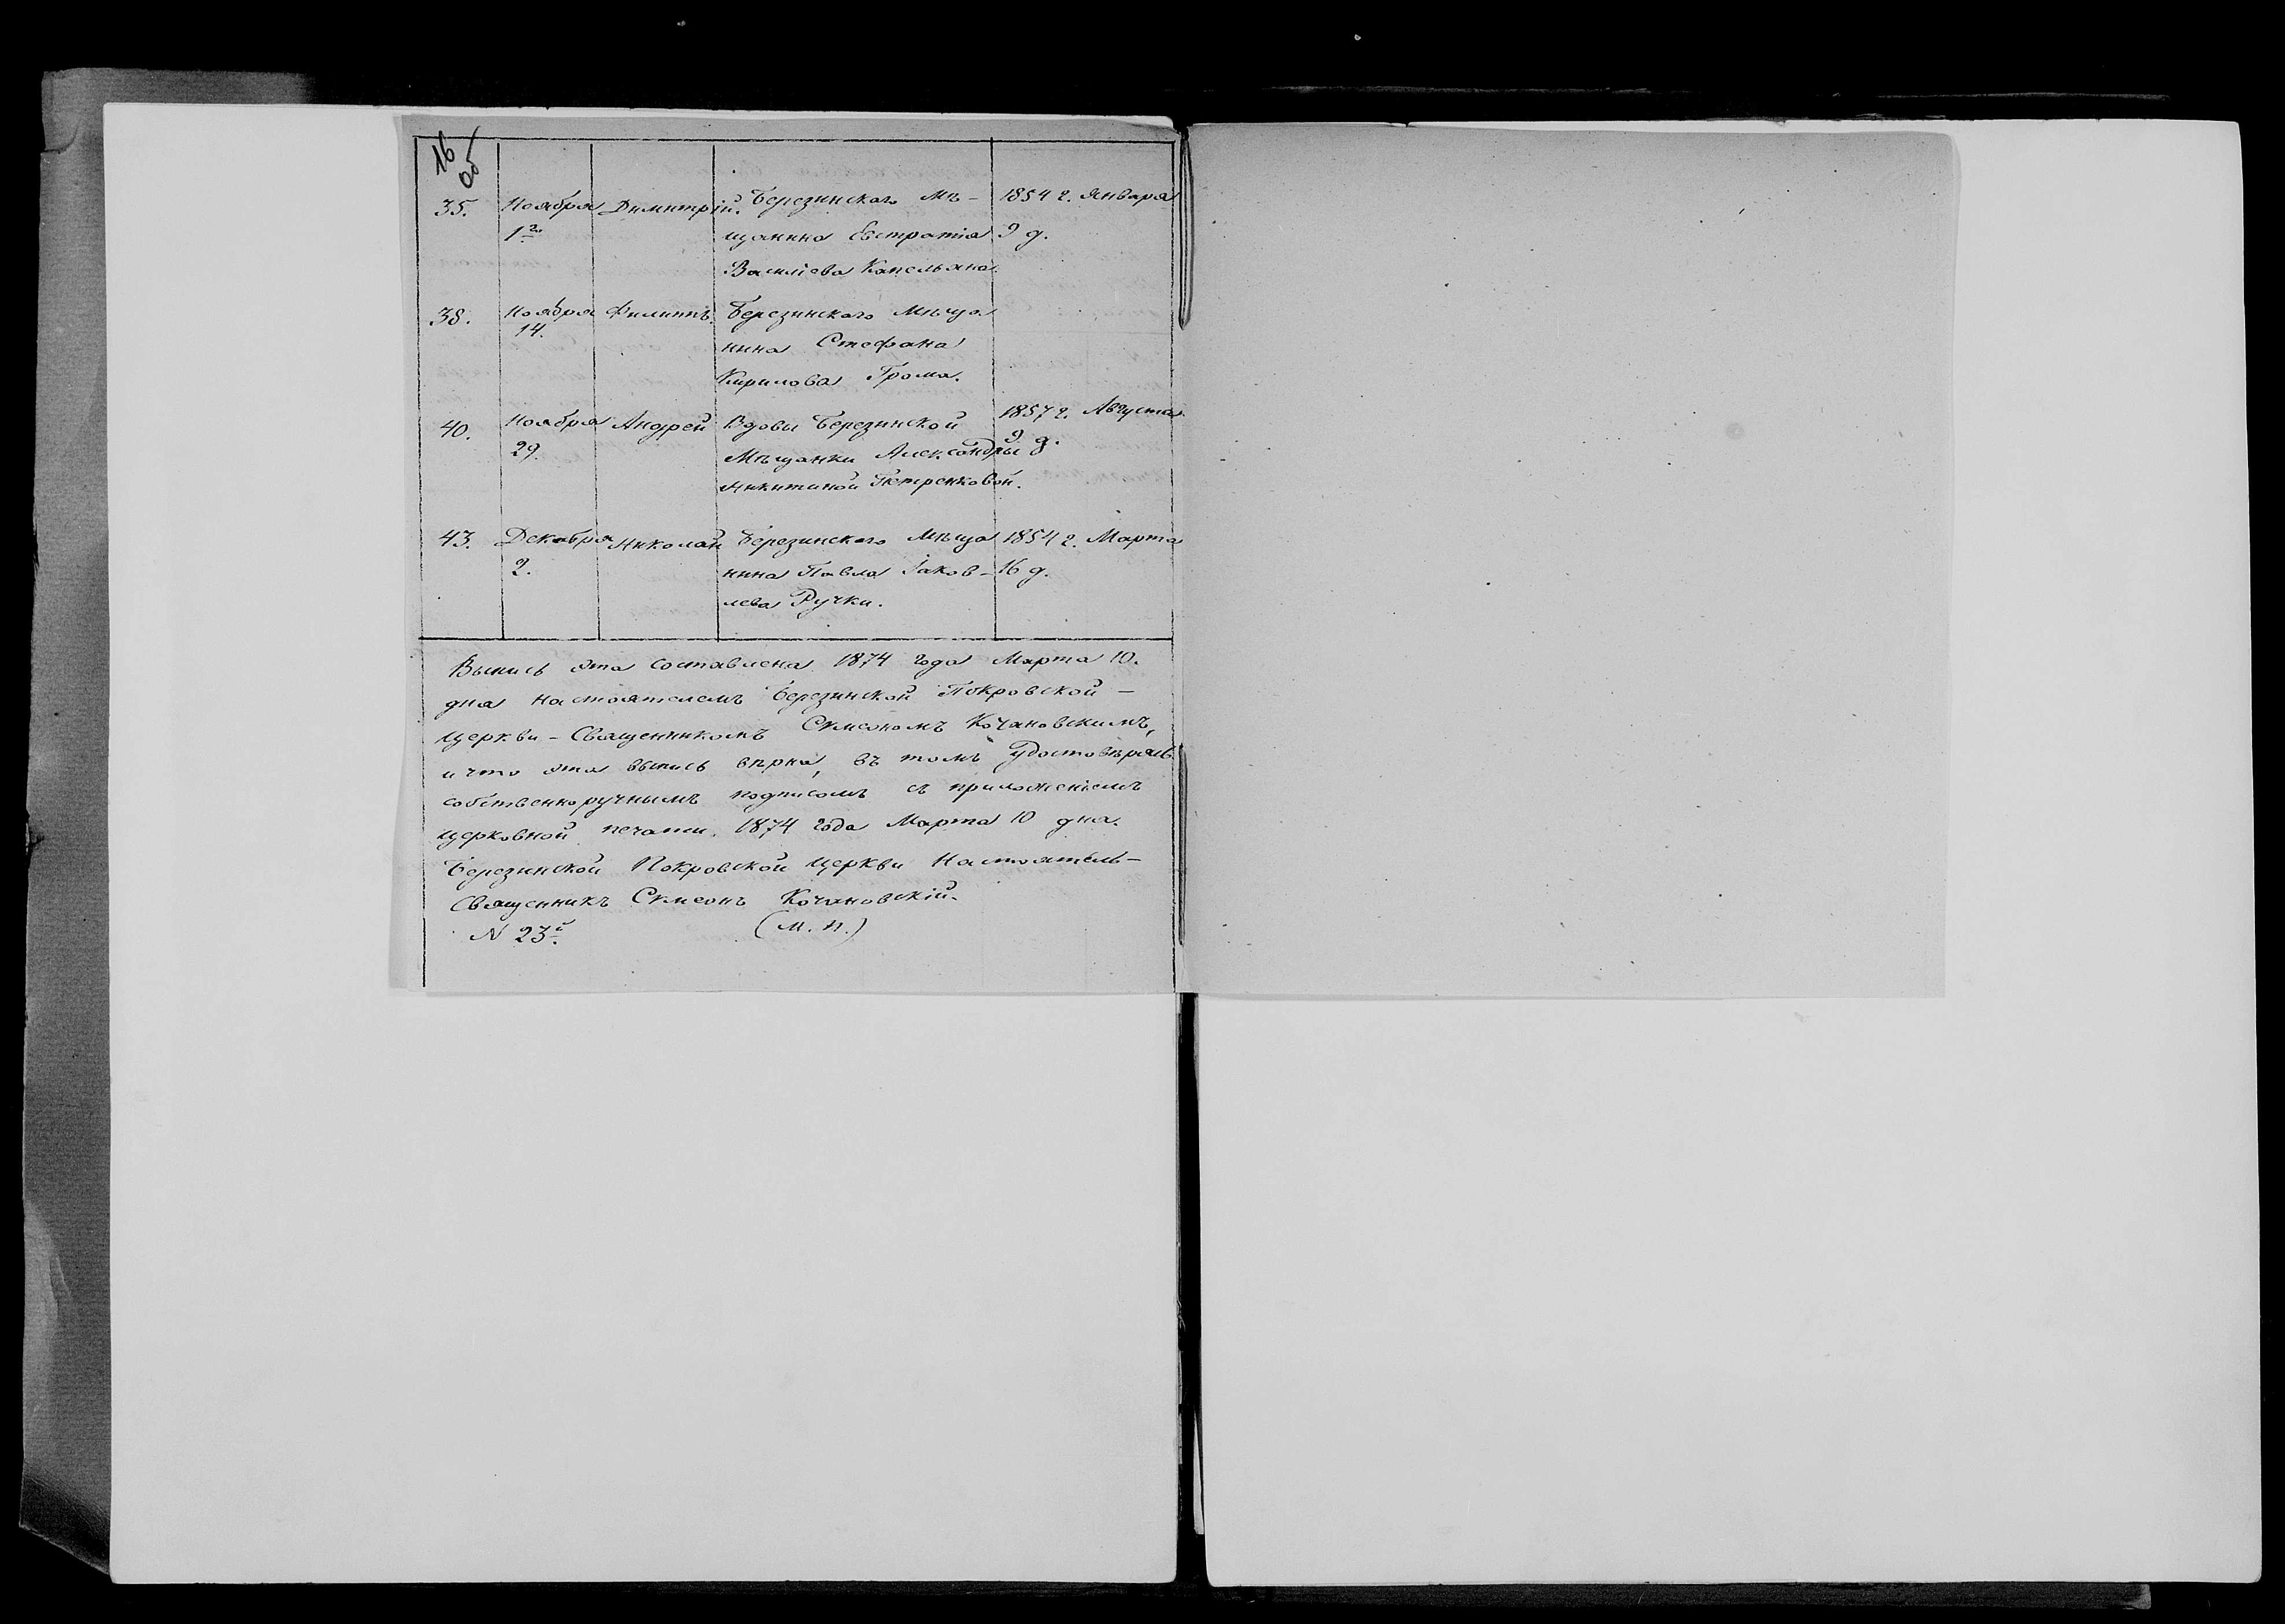 16 об
35. Ноября Димитрій. Березинскаго Мѣ- 1854 г. Января
1го щанина Евстратія 9 д.
Василіева Капельяна.
38. Ноября Филиппъ. Березинскаго Мѣща
14. нина Стефана
Кирилова Грома.
40. Ноября Андрей Вдовы Березинской 1857 г. Августа
29. Мѣщанки Александры 9 д.
Никитиной Петренковой.
43. Декабря Николай Березинскаго Мѣща 1854 г. Марта
2. нина Павла Іаков- 16 д.
лева Ручки.
Выпись эта составлена 1874 года Марта 10.
дня настоятелемъ Березинской Покровской -
церкви - Священникомъ Симеономъ Кочановскимъ,
и что эта выпись вѣрна, въ томъ удостовѣряю
собственноручнымъ подписомъ съ приложеніемъ
церковной печати. 1874 года Марта 10 дня.
Березинской Покровской церкви Настоятель-
Священникъ Симеонъ Кочановскій.
N 23й. (М. П.)